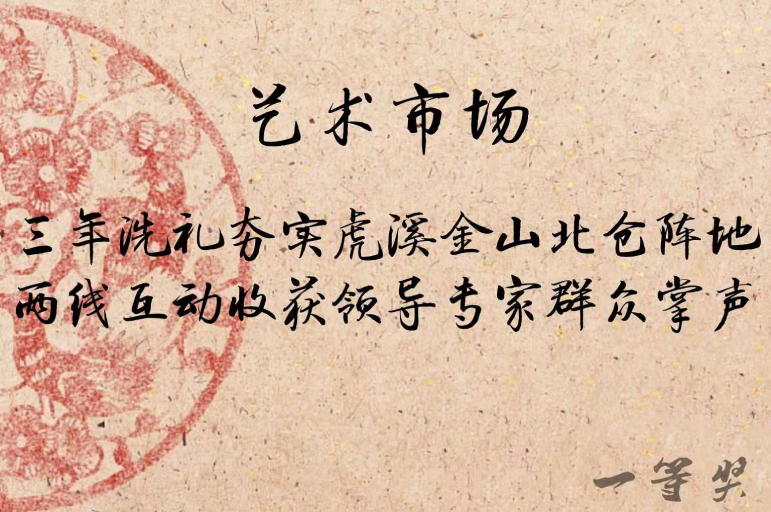 艺术市场
三年洗礼夯实虎溪金山北仓阵地
两线互动收获领导专家群众掌声
一等奖